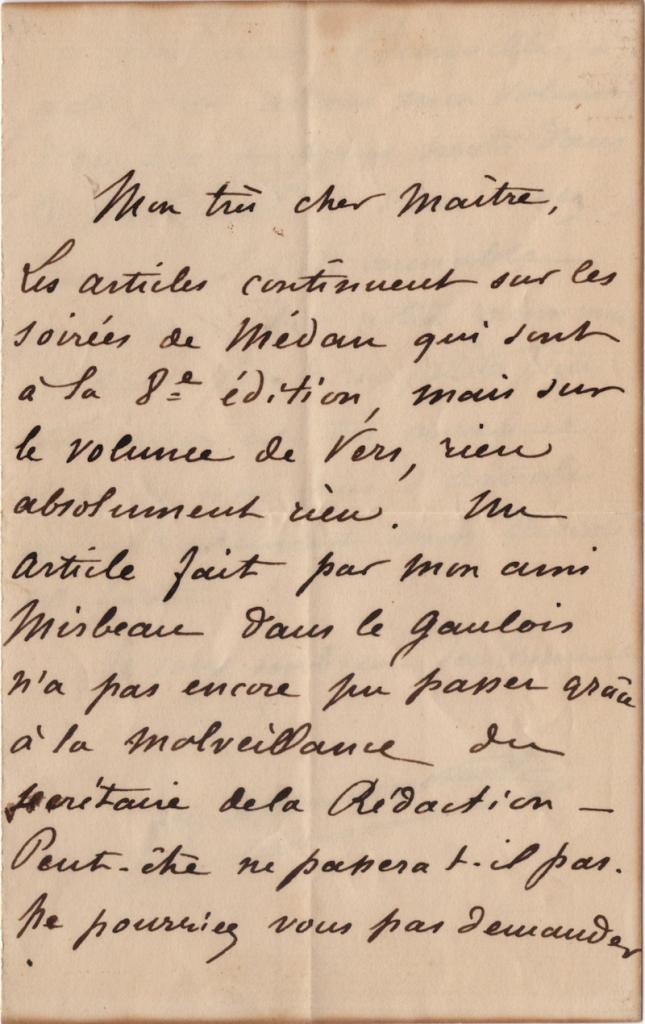 Mon très cher Maître,
Les articles continuent sur les
soirées de Médan qui sont
à la 8e édition, mais sur
le volume de Vers, rien
absolument rien. Un
article fait par mon ami
Mirbeau dans le Gaulois
n'a pas encore pu passer grâce
à la malveillance du
secrétaire de la Rédaction —
Peut-être ne passera t-il pas.
Ne pourriez vous pas demander